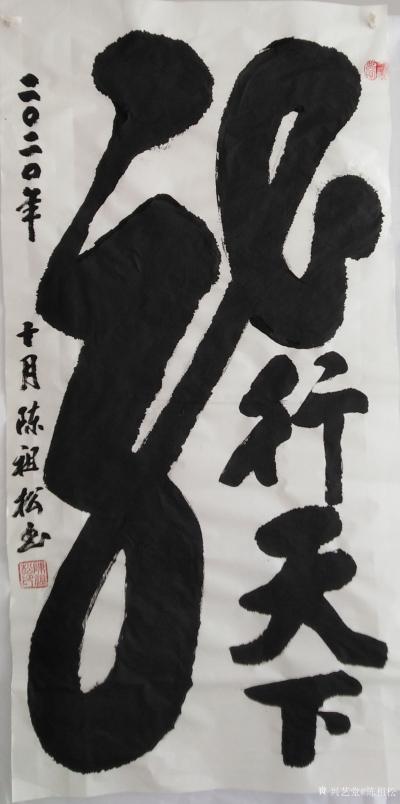 龙行天下
二〇二〇年 十月 陈祖松书
兴艺堂@陈祖松